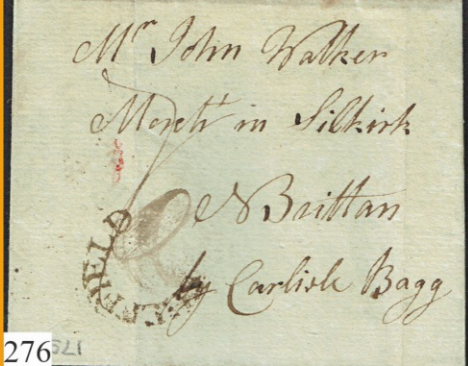 Mr John Walker
Mercht in Silkirk
N Brittan
by Carlisle Bagg
276